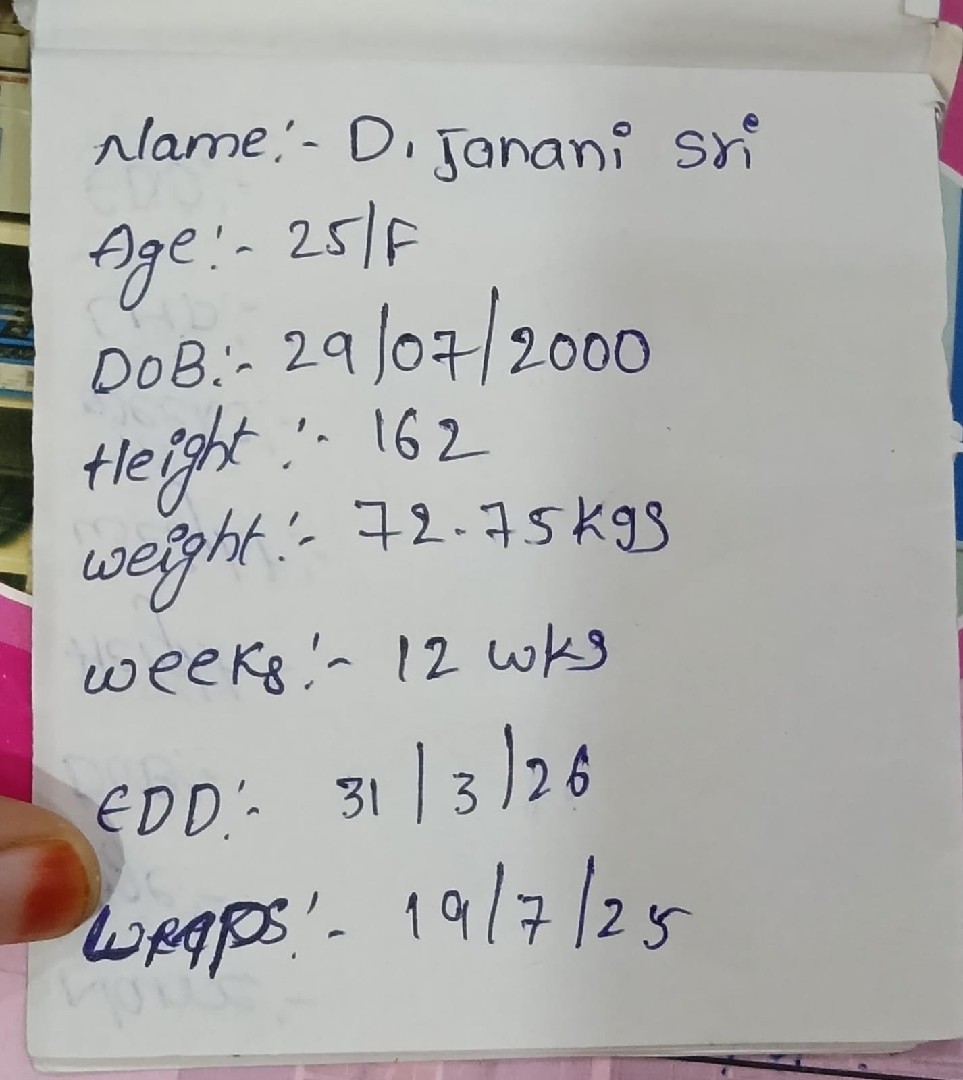 Name:- D. Janani Sri
Age:- 25/F
DOB:- 29/07/2000
Height:- 162
weight:- 72.75kgs
weeks:- 12 wks
EDD:- 31/3/26
:- 19/7/25